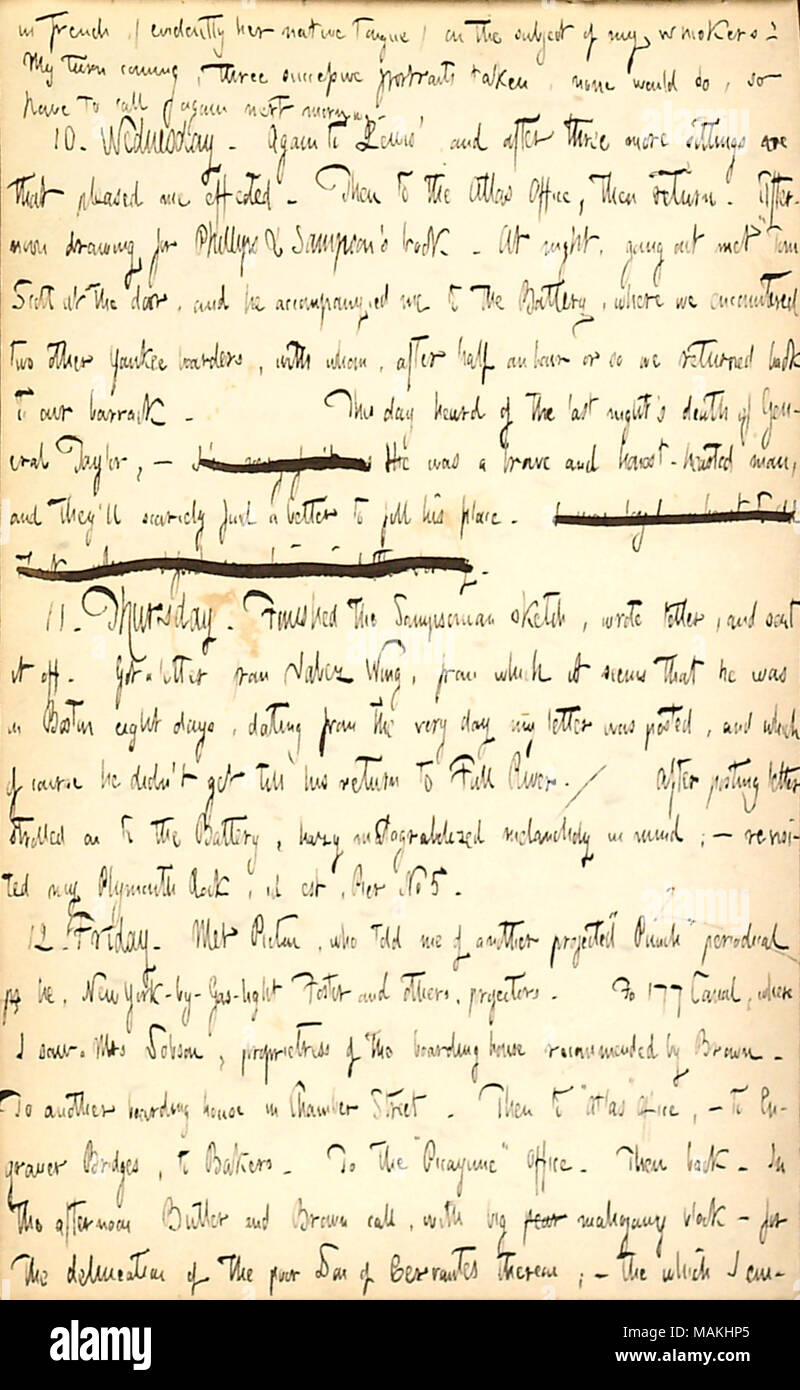 in French, (evidently her native tongue) on the subject of my
My turn coming, three successive portraits taken, none would do, so
have to call again next morn
10. Wednesday. Again to Lewis' and after three more sittings one
that pleased me effected. Then to the Atlas Office, then return. After-
noon drawing for Phillips & Sampson's book. At night, going out met Tom
Scott at the door, and he accompanyied me to the Battery, where we encountered
two other Yankee boarders, with whom, after half an hour or so we returned back
to our barrack. This day heard of the last night's death of Gen-
eral Taylor, — He was a brave and honest-hearted man,
and they'll scarcely find a better to fill his place.
11. Thursday. Finished the Sampsonian sketch, wrote letter, and sent
it off. Got a letter from Jabez Wing, from which it seems that he was
in Boston eight days, dating from the very day my letter was posted, and which
of course he didn't get till his return to Fall River. / After posting letter
strolled on to the Battery, hazy melancholy in mind; — revisi-
ted my Plymouth Rock, id est, Pier No 5.
12. Friday. Met Picton, who told me of another projected "Punch" periodical
he, New York-by-Gas-light Foster and others, projectors. To 177 Canal, where
I saw Mrs Dobson, proprietress of the boarding house recommended by Brown.
To another boarding house in Chamber Street. Then to "Atlas" Office, — to En-
graver Bridges, to Bakers. To the "Picayune" Office. Then back. In
the afternoon Butler and Brown call, with big pear mahogany block — for
the delineation of the poor Don of Cervantes thereon; — the which I com-
alamy
Image ID: MAKHP5
www.alamy.com